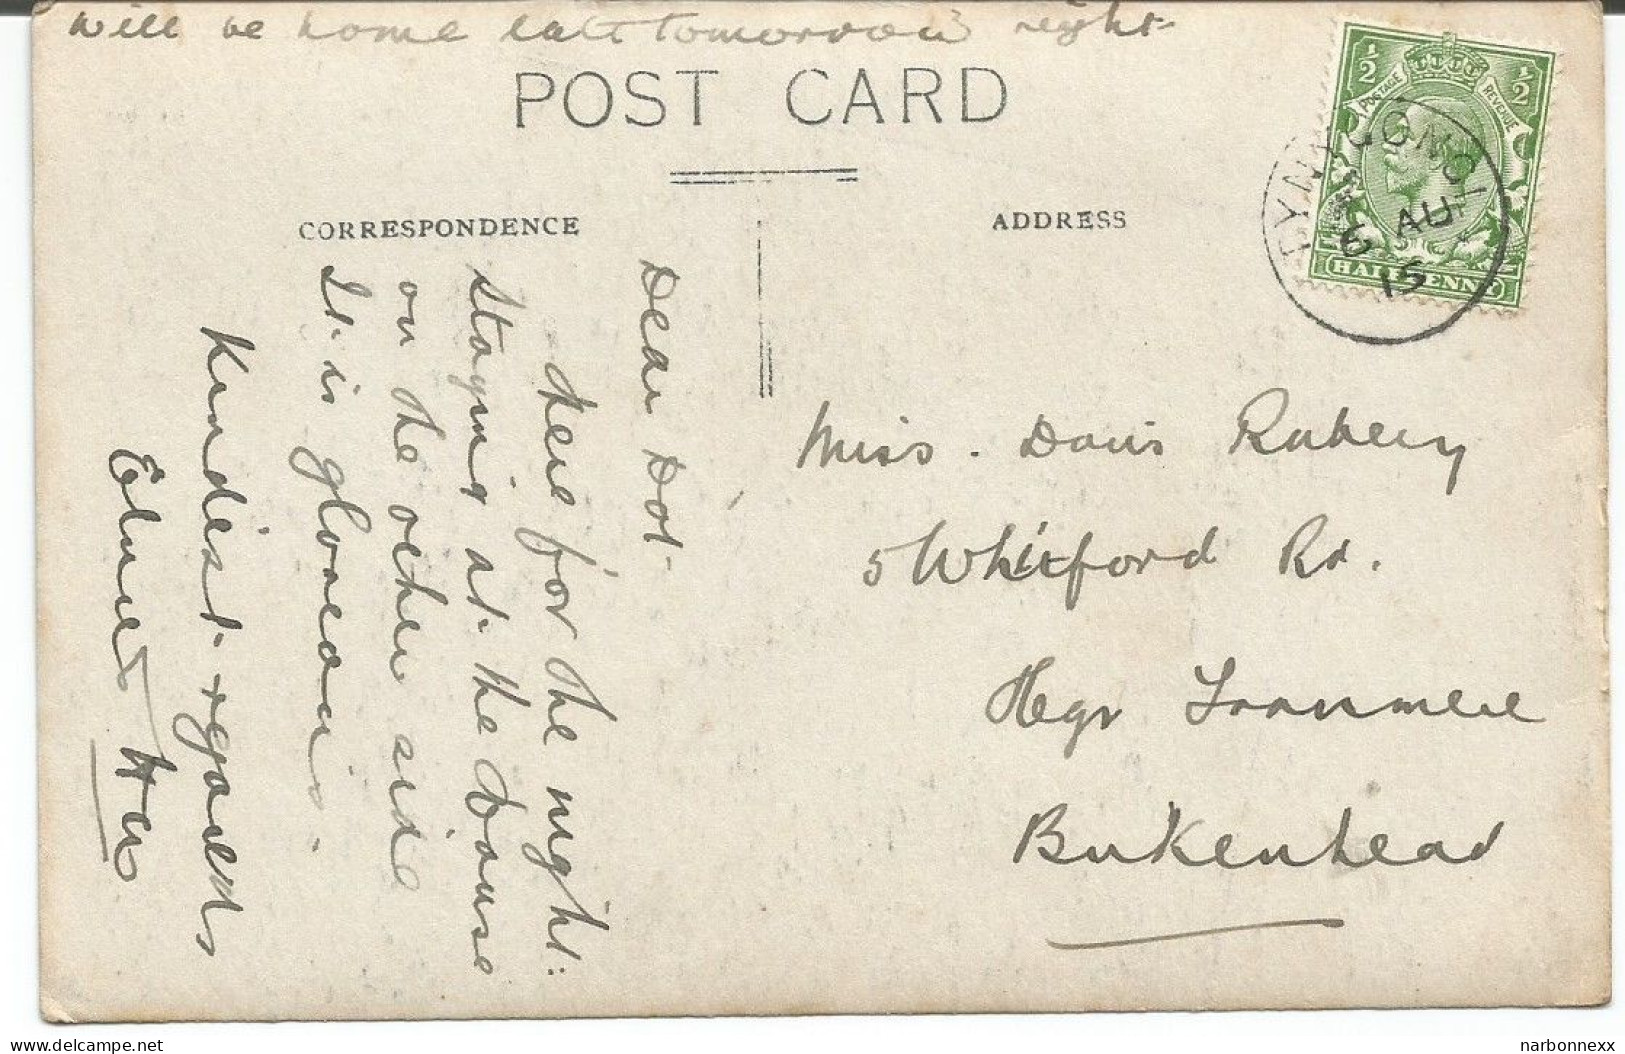 will be home late tomorrow night
POST CARD
CORRESPONDENCE
ADDRESS
Dear Dot
Here for the night:
staying at the house
on the other side
It is glorious.
Kindest regards
Elmer
½
½
POSTAGE
REVENUE
HALFPENNY
TYNYGONGL
6 AU
15
Miss. Doris Rabery
5 Whitford Rd.
Hegr Tranmere
Birkenhead
narbonnexx